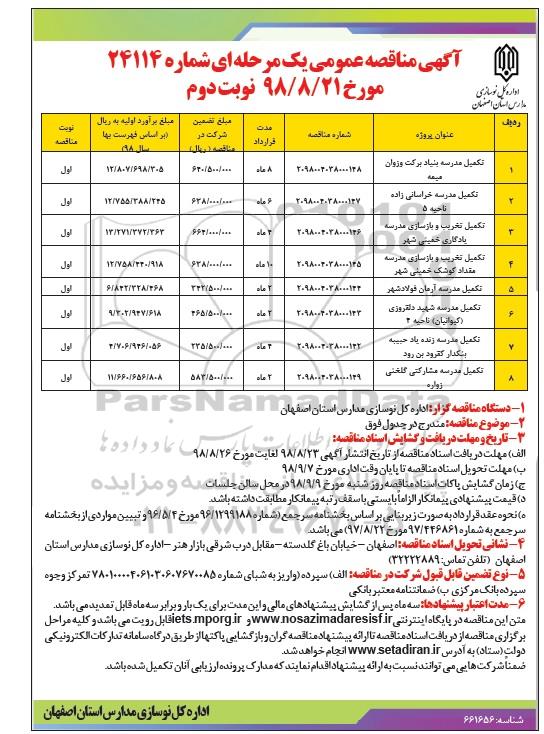 آگهی مناقصه عمومی یک مرحله ای شماره ۲۴۱۱۴
مورخ ۹۸/۸/۲۱ نوبت دوم
اداره کل نوسازی
مدارس استان اصفهان
ردیف | عنوان پروژه | شماره مناقصه | مدت قرارداد | مبلغ تضمین شرکت در مناقصه (ریال) | مبلغ برآورد اولیه به ریال (بر اساس فهرست بها سال ۹۸) | نوبت مناقصه
۱ | تکمیل مدرسه بنیاد برکت وزوان میمه | ۲۰۹۸۰۰۴۰۳۸۰۰۰۱۴۸ | ۸ ماه | ۶۴۰/۵۰۰/۰۰۰ | ۱۲/۸۰۷/۶۹۸/۳۰۵ | اول
۲ | تکمیل مدرسه خراسانی زاده ناحیه ۵ | ۲۰۹۸۰۰۴۰۳۸۰۰۰۱۴۷ | ۶ ماه | ۶۳۸/۰۰۰/۰۰۰ | ۱۲/۷۵۵/۳۸۸/۲۴۵ | اول
۳ | تکمیل تخریب و بازسازی مدرسه یادگاری خمینی شهر | ۲۰۹۸۰۰۴۰۳۸۰۰۰۱۴۶ | ۴ ماه | ۶۶۴/۰۰۰/۰۰۰ | ۱۳/۲۷۱/۳۷۲/۳۶۳ | اول
۴ | تکمیل تخریب و بازسازی مدرسه مقداد کوشک خمینی شهر | ۲۰۹۸۰۰۴۰۳۸۰۰۰۱۴۵ | ۱۰ ماه | ۶۳۸/۰۰۰/۰۰۰ | ۱۲/۷۵۸/۴۴۰/۹۱۸ | اول
۵ | تکمیل مدرسه آرمان فولادشهر | ۲۰۹۸۰۰۴۰۳۸۰۰۰۱۴۴ | ۲ ماه | ۳۴۲/۵۰۰/۰۰۰ | ۶/۸۴۲/۳۲۸/۴۶۸ | اول
۶ | تکمیل مدرسه شهید دلقروزی (کیوانیان) ناحیه ۴ | ۲۰۹۸۰۰۴۰۳۸۰۰۰۱۴۳ | ۲ ماه | ۴۶۵/۵۰۰/۰۰۰ | ۹/۳۰۲/۹۴۷/۶۱۸ | اول
۷ | تکمیل مدرسه زنده یاد حبیبه بنکدار کفرود بن رود | ۲۰۹۸۰۰۴۰۳۸۰۰۰۱۴۲ | ۴ ماه | ۲۳۵/۵۰۰/۰۰۰ | ۴/۷۰۶/۹۴۶/۰۵۶ | اول
۸ | تکمیل مدرسه مشارکتی گلخنی زواره | ۲۰۹۸۰۰۴۰۳۸۰۰۰۱۴۹ | ۲ ماه | ۵۸۳/۵۰۰/۰۰۰ | ۱۱/۶۶۰/۶۵۶/۸۰۸ | اول
۱- دستگاه مناقصه گزار: اداره کل نوسازی مدارس استان اصفهان
۲- موضوع مناقصه: مندرج در جدول فوق
۳- تاریخ و مهلت دریافت و گشایش اسناد مناقصه:
الف) مهلت دریافت اسناد مناقصه از تاریخ انتشار آگهی ۹۸/۸/۲۳ لغایت مورخ ۹۸/۸/۲۶
ب) مهلت تحویل اسناد مناقصه تا پایان وقت اداری مورخ ۹۸/۹/۷
ج) زمان گشایش پاکات اسناد مناقصه روز شنبه مورخ ۹۸/۹/۹ در محل سالن جلسات
د) قیمت پیشنهادی پیمانکار الزاماً بایستی با سقف رتبه پیمانکار مطابقت داشته باشد.
ه) نحوه عقد قرارداد به صورت زیربنایی بر اساس بخشنامه سرجمع (شماره ۹۶/۱۲۹۹۱۸۸ مورخ ۹۶/۵/۴ و تبیین مواردی از بخشنامه
سرجمع به شماره ۹۷/۴۴۶۸۶۱ مورخ ۹۷/۸/۲۲) می باشد.
۴- نشانی تحویل اسناد مناقصه: اصفهان – خیابان باغ گلدسته – مقابل درب شرقی بازار هنر – اداره کل نوسازی مدارس استان
اصفهان (تلفن تماس: ۳۲۲۲۲۸۸۹)
۵- نوع تضمین قابل قبول شرکت در مناقصه: الف) سپرده (واریز به شبای شماره ۷۸۰۱۰۰۰۰۴۰۶۱۰۳۰۶۰۷۶۷۰۰۸۵ تمرکز وجوه
سپرده بانک مرکزی ب) ضمانتنامه معتبر بانکی
۶- مدت اعتبار پیشنهادها: سه ماه پس از گشایش پیشنهادهای مالی و این مدت برای یک بار و برابر سه ماه قابل تمدید می باشد.
متن این مناقصه در پایگاه اینترنتی www.nosazimadaresisf.ir و iets.mporg.ir قابل رویت می باشد و کلیه مراحل
برگزاری مناقصه از دریافت اسناد مناقصه تا ارائه پیشنهاد مناقصه گران و بازگشایی پاکتها از طریق درگاه سامانه تدارکات الکترونیکی
دولت (ستاد) به آدرس www.setadiran.ir انجام خواهد شد.
ضمناً شرکت هایی می توانند نسبت به ارائه پیشنهاد اقدام نمایند که مدارک پرونده ارزیابی آنان تکمیل شده باشد.
شناسه: ۶۶۱۶۵۶
اداره کل نوسازی مدارس استان اصفهان
ParsNamadData